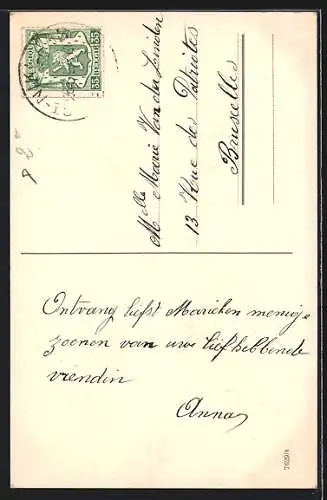 BELGIQUE BELGIË
35 35
Melle Marie Van der Linden
13 Rue des Patriotes
Bruxelles
Ontvang liefst Marieken menige
zoenen van uwe liefhebbende
vriendin
Anna